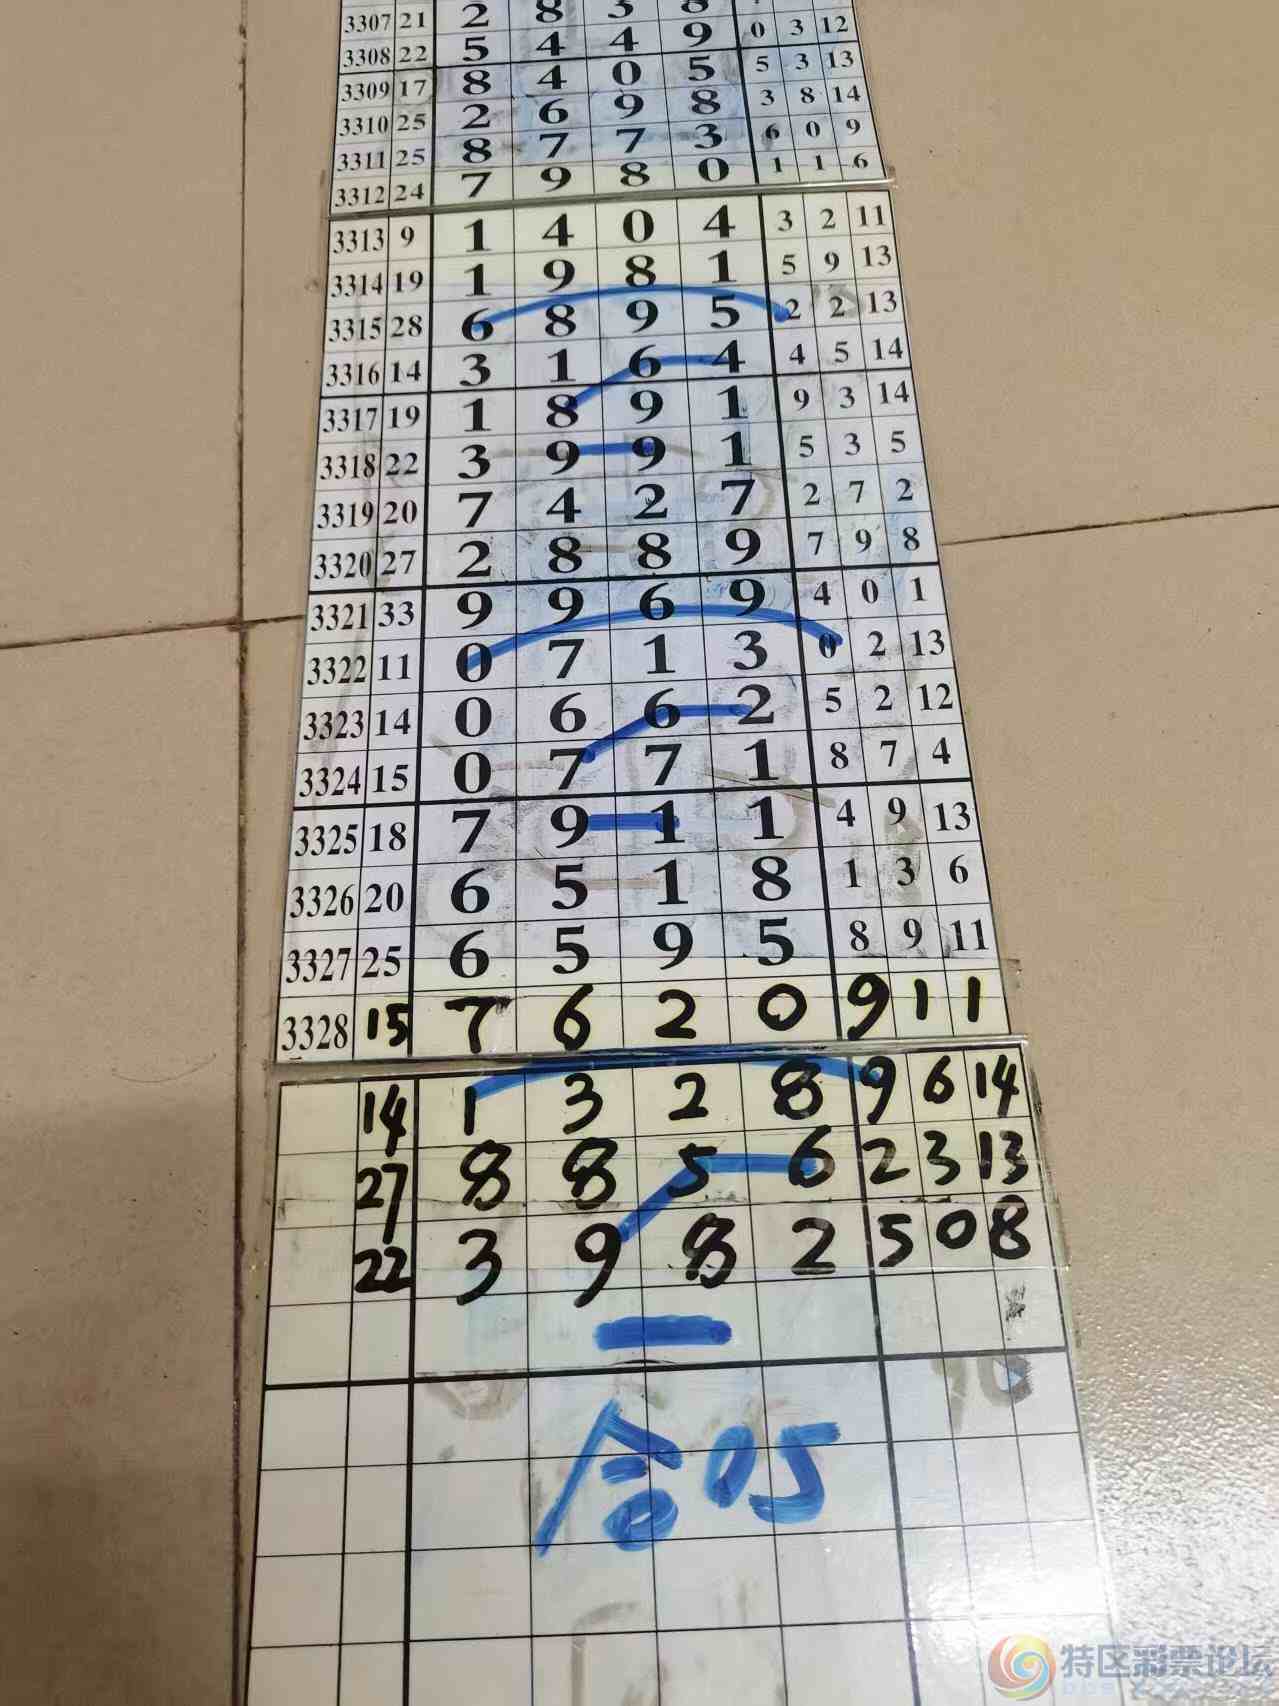 3307 21 2 8 3 8
3308 22 5 4 4 9 0 3 12
3309 17 8 4 0 5 5 3 13
3310 25 2 6 9 8 3 8 14
3311 25 8 7 7 3 6 0 9
3312 24 7 9 8 0 1 1 6
3313 9 1 4 0 4 3 2 11
3314 19 1 9 8 1 5 9 13
3315 28 6 8 9 5 2 2 13
3316 14 3 1 6 4 4 5 14
3317 19 1 8 9 1 9 3 14
3318 22 3 9 9 1 5 3 5
3319 20 7 4 2 7 2 7 2
3320 27 2 8 8 9 7 9 8
3321 33 9 9 6 9 4 0 1
3322 11 0 7 1 3 0 2 13
3323 14 0 6 6 2 5 2 12
3324 15 0 7 7 1 8 7 4
3325 18 7 9 1 1 4 9 13
3326 20 6 5 1 8 1 3 6
3327 25 6 5 9 5 8 9 11
3328 15 7 6 2 0 9 1 1
14 1 3 2 8 9 6 14
27 8 8 5 6 2 3 13
22 3 9 8 2 5 0 8
合05
特区彩票论坛